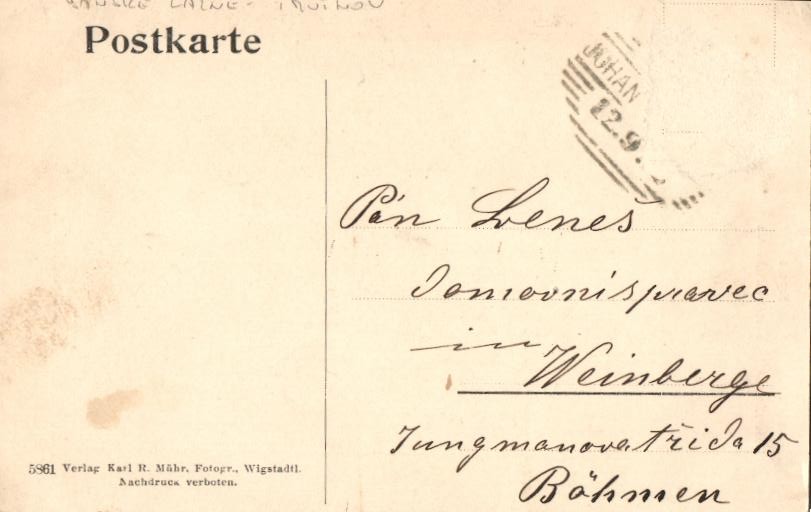 Postkarte
JOHAN
12.9.
Pán Beneš
domovní správec
in
Weinberge
Jungmanova třída 15
Böhmen
5861 Verlag Karl R. Mühr, Fotogr., Wigstadtl.
Nachdruck verboten.